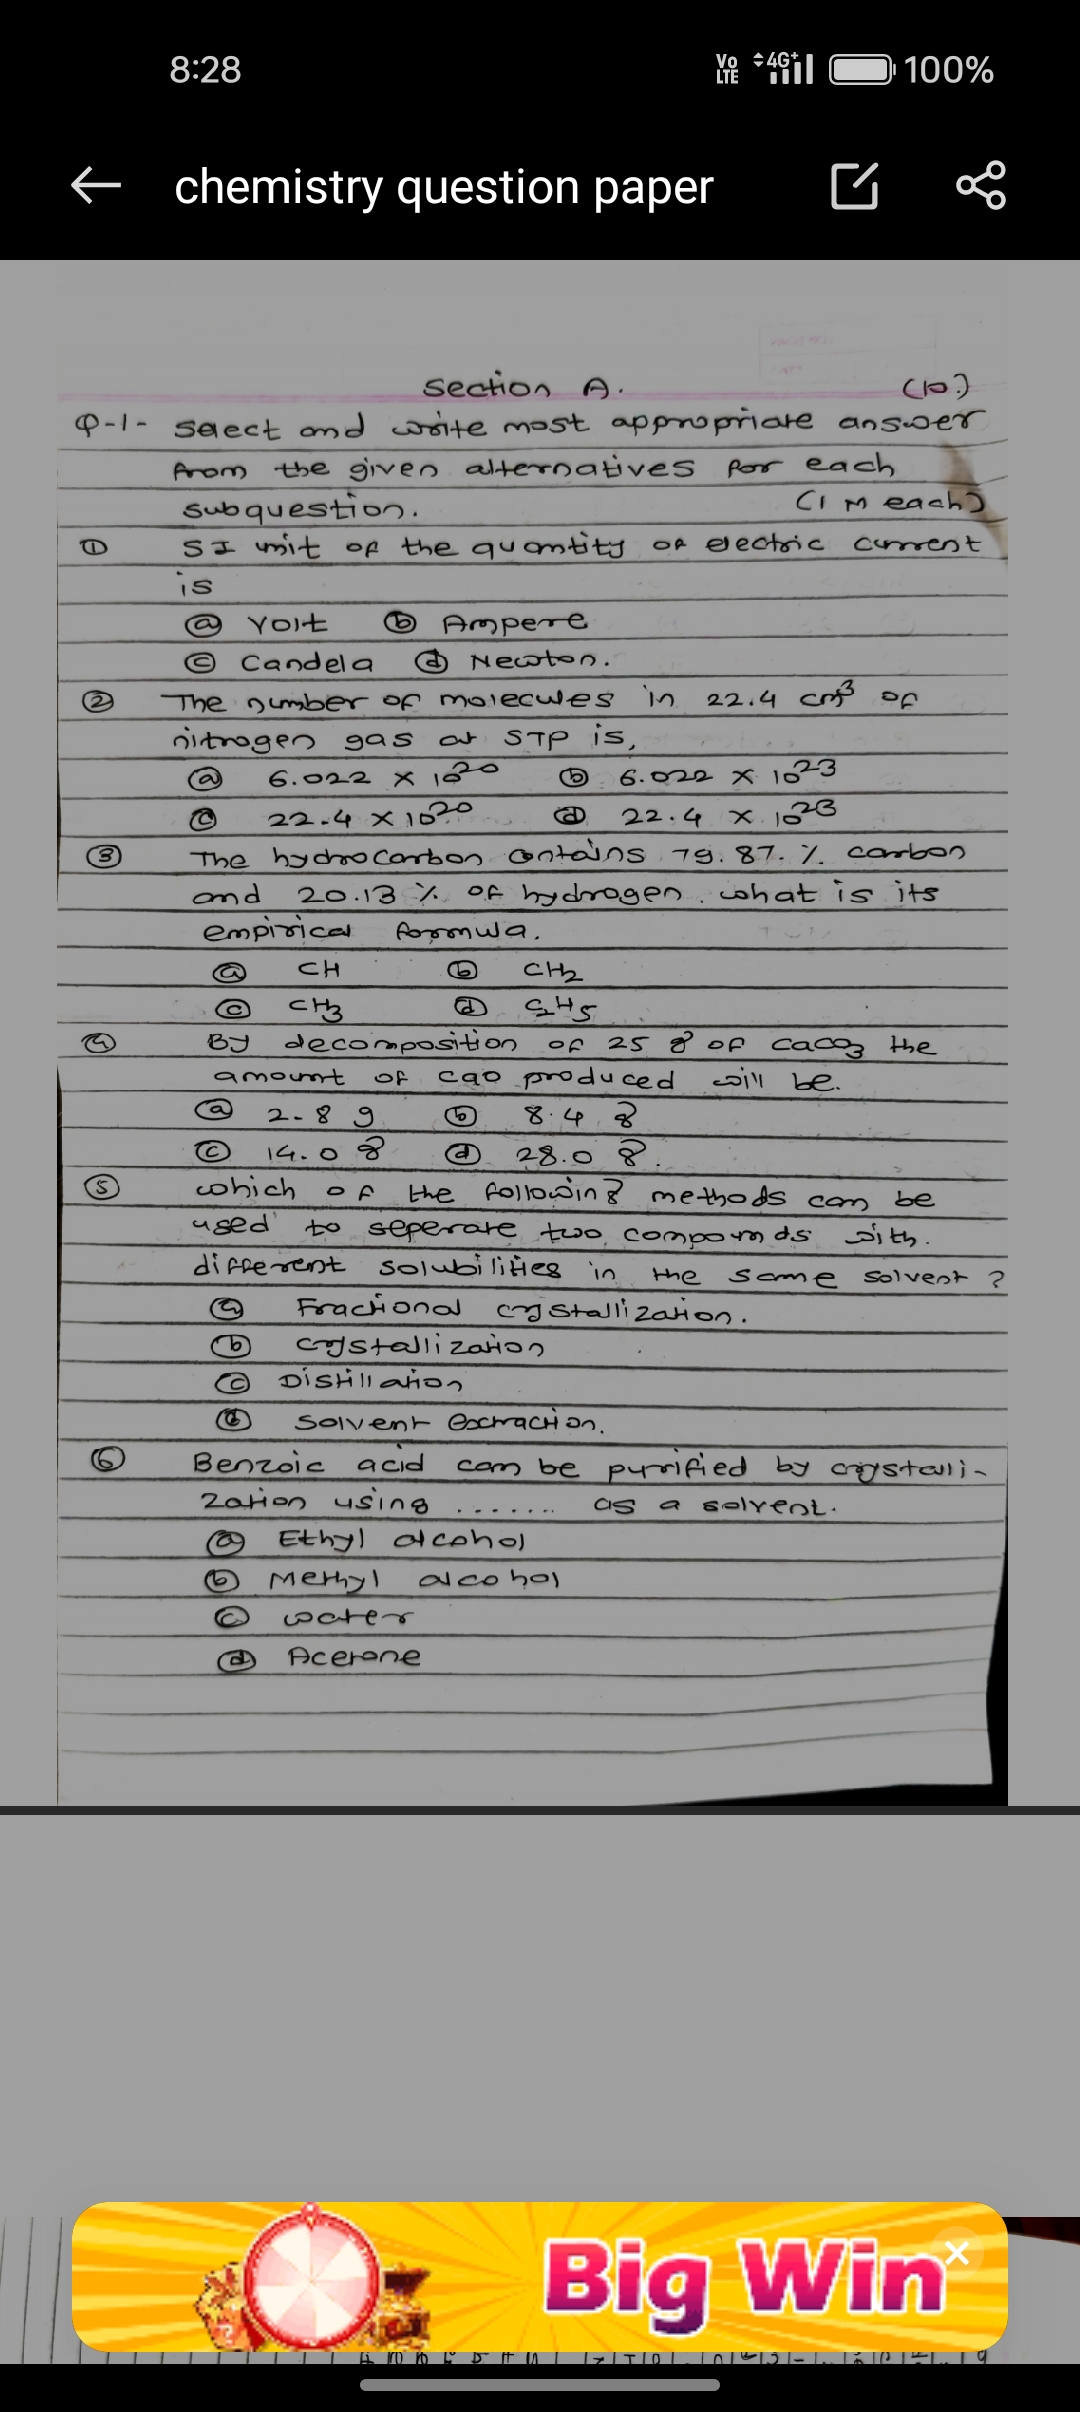 8:28
Vo LTE 4G+ 100%
chemistry question paper
Section A. (10)
Q-1- Select and write most appropriate answer
from the given alternatives for each
subquestion. (1 M each)
① SI unit of the quantity of electric current
is
ⓐ Volt ⓑ Ampere
ⓒ Candela ⓓ Newton.
② The number of molecules in 22.4 cm³ of
nitrogen gas at STP is,
ⓐ 6.022 × 10²⁰ ⓑ 6.022 × 10²³
ⓒ 22.4 × 10²⁰ ⓓ 22.4 × 10²³
③ The hydrocarbon contains 79.87.% carbon
and 20.13 % of hydrogen. what is its
empirical formula.
ⓐ CH ⓑ CH₂
ⓒ CH₃ ⓓ C₂H₅
④ By decomposition of 25 g of CaCO₃ the
amount of CaO produced will be.
ⓐ 2.8 g ⓑ 8.4 g
ⓒ 14.0 g ⓓ 28.0 g.
⑤ which of the following methods can be
used to seperate two compounds with.
different solubilities in the same solvent ?
ⓐ Fractional crystallization.
ⓑ crystallization
ⓒ Distillation
ⓓ Solvent Extraction.
⑥ Benzoic acid can be purified by crystalli-
zation using ....... as a solvent.
ⓐ Ethyl alcohol
ⓑ Methyl alcohol
ⓒ water
ⓓ Acetone
Big Win